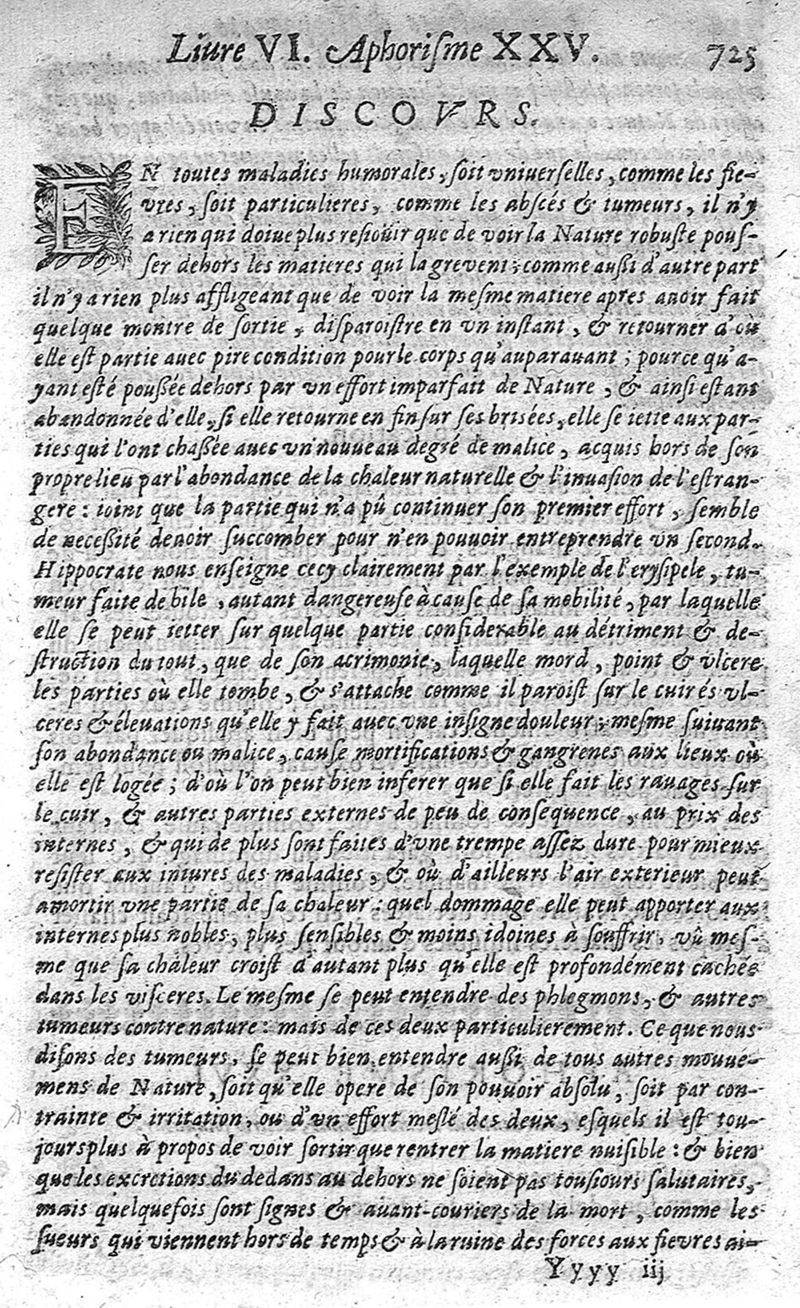 Liure VI. Aphorisme XXV. 725
DISCOVRS.
EN toutes maladies humorales, soit vniuerselles, comme les fie-
vres, soit particulieres, comme les abscés & tumeurs, il n'y
a rien qui doiue plus resioüir que de voir la Nature robuste pous-
ser dehors les matieres qui la grevent; comme aussi d'autre part
il n'y a rien plus affligeant que de voir la mesme matiere apres avoir fait
quelque montre de sortie, disparoistre en vn instant, & retourner d'où
elle est partie avec pire condition pour le corps qu'auparauant; pource qu'a-
yant esté poussée dehors par vn effort imparfait de Nature, & ainsi estant
abandonnée d'elle, si elle retourne en fin sur ses brisées, elle se iette aux par-
ties qui l'ont chassée auec vn nouueau degré de malice, acquis hors de son
propre lieu par l'abondance de la chaleur naturelle & l'invasion de l'estran-
gere: ioint que la partie qui n'a pû continuer son premier effort, semble
de necessité devoir succomber pour n'en pouvoir entreprendre vn second.
Hippocrate nous enseigne cecy clairement par l'exemple de l'erysipele, tu-
meur faite de bile, autant dangereuse à cause de sa mobilité, par laquelle
elle se peut ietter sur quelque partie considerable au détriment & de-
struction du tout, que de son acrimonie, laquelle mord, point & vlcere
les parties où elle tombe, & s'attache comme il paroist sur le cuir és vl-
ceres & élevations qu'elle y fait avec vne insigne douleur; mesme suivant
son abondance ou malice, cause mortifications & gangrenes aux lieux où
elle est logée; d'où l'on peut bien inferer que si elle fait les ravages sur
le cuir, & autres parties externes de peu de consequence, au prix des
internes, & qui de plus sont faites d'vne trempe assez dure pour mieux
resister aux iniures des maladies, & où d'ailleurs l'air exterieur peut
amortir vne partie de sa chaleur: quel dommage elle peut apporter aux
internes plus nobles, plus sensibles & moins idoines à souffrir, vû mes-
me que sa chaleur croist d'autant plus qu'elle est profondément cachée
dans les visceres. Le mesme se peut entendre des phlegmons, & autres
tumeurs contre nature: mais de ces deux particulierement. Ce que nous
disons des tumeurs, se peut bien entendre aussi de tous autres mouve-
mens de Nature, soit qu'elle opere de son pouvoir absolu, soit par con-
trainte & irritation, ou d'vn effort meslé des deux, esquels il est tou-
jours plus à propos de voir sortir que rentrer la matiere nuisible: & bien
que les excretions du dedans au dehors ne soient pas tousiours salutaires,
mais quelquefois sont signes & avant-couriers de la mort, comme les
sueurs qui viennent hors de temps & à la ruine des forces aux fievres ai-
Yyyy iij